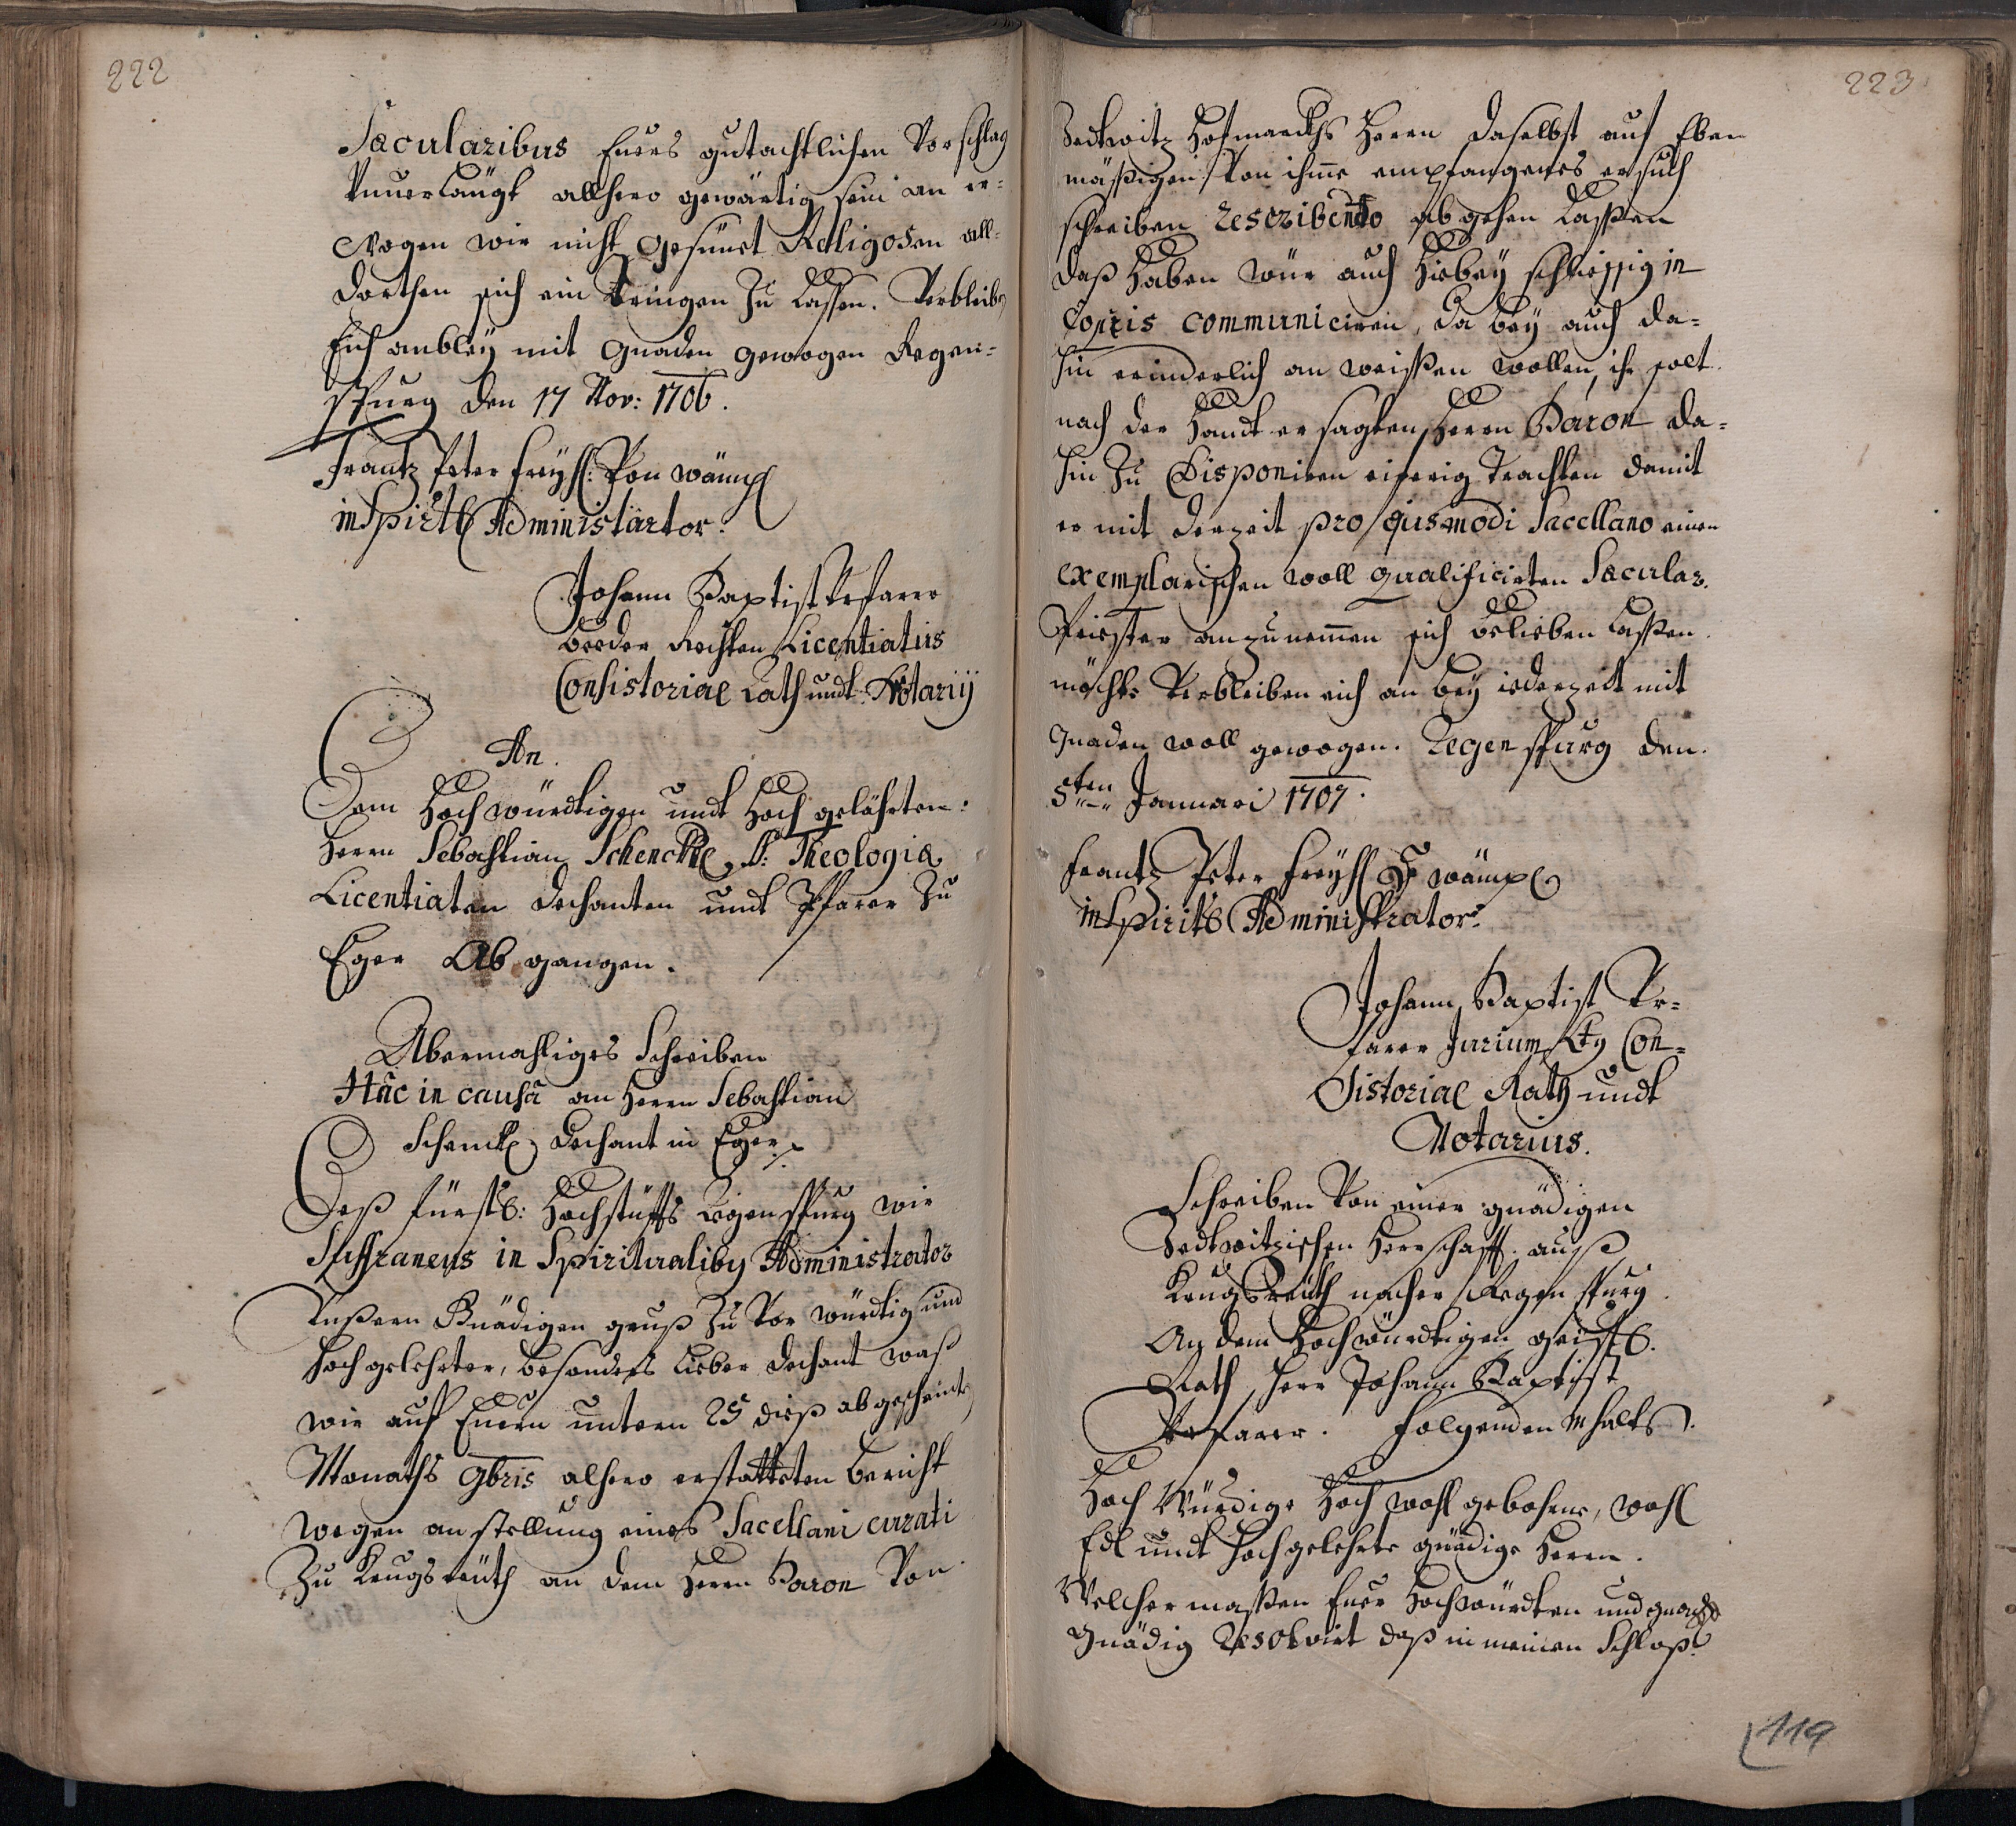 222
Sæcularibus Eures gutachtlichen Vorschlag
Vnuerlängt allhero gewärtig sein an er=
wogen wir nicht gesünet Religosen all=
dorthen sich ein tringen Zu lassen. Verbleib
Eich anbey mit Gnaden gewogen Regen=
spurg den 17 Nov: 1706.
Frantz Peter Freyh: Von wämpl
in Spirtl Administartor:
Johann Baptist Vrfarer
beeder Rechten Licentiatus
Consistorial Rath undt Notariÿ
An.
Dem Hochwürdtigen undt Hoch gelährten:
Herrn Sebastian Schenckhl S: Theologiæ
Licentiaten Dechanten undt Pfarer Zu
Eger Ab gangen.
Abermahliges Schreiben
Hâc in causâ an Herrn Sebastian
Schenckhl Dechant in Eger.
Deß fürstl: Hochstüffts Regenspurg wir
Suffraneus in Spiritualiby Administrator
Vnßern Gnädigen gruß Zu Vor würdtig und
Hochgelehrter, besondrs lieber Dechant waß
wir auf Euern untern 25 dieß abgeheint
Monaths 9bris alhero erstatteten bericht
wegen anstellung eines Sacellani curati
Zu Krugsreüth an dem Herrn Baron Von
223
Zedtwitz Hofmarckhs Herrn daselbst auf Eben
mäßigen Von ihme empfangenes ersuch
schreiben rescribendo abgehen laßen
daß haben wür auch hiebey schliessig in
Copiis communiciren, da bey auch da=
hin erinderlich an weissen wollen, ihr solt
nach der Handt ersagten Herrn Baron da=
hin Zu Disponiren eiferig trachten damit
er mit derzeit pro hujusmodi Sacellano einen
exemplarischen woll qualificirten Sæcular.
Priester anzunemen sich belieben laßen
möchte Verbleiben eich an bey iederzeit mit
Gnaden woll gewogen. Regenspurg den.
5ten Januari 1707.
Frantz Peter Freyh V wämpl
in Spiritl Administrator:
Johann Baptist Vr=
farer Jurium Lty Con=
sistorial Rath undt
Notarius.
Schreiben Von einer gnädigen
Zedtwitzischen Herrschafft auß
Krugsreüth nacher Regenspurg.
An dem Hochwürdtigen geistl.
Rath, Herr Johann Baptist
Vrfarer. Folgenden Inhalts.
Hoch Würdige Hoch wohl gebohrne, wohl
Edl undt Hochgelehrte gnädige Herrn.
Welcher massen Euer Hochwürdten und gnadt
Gnädig Resolvirt daß in meinen Schloß
119